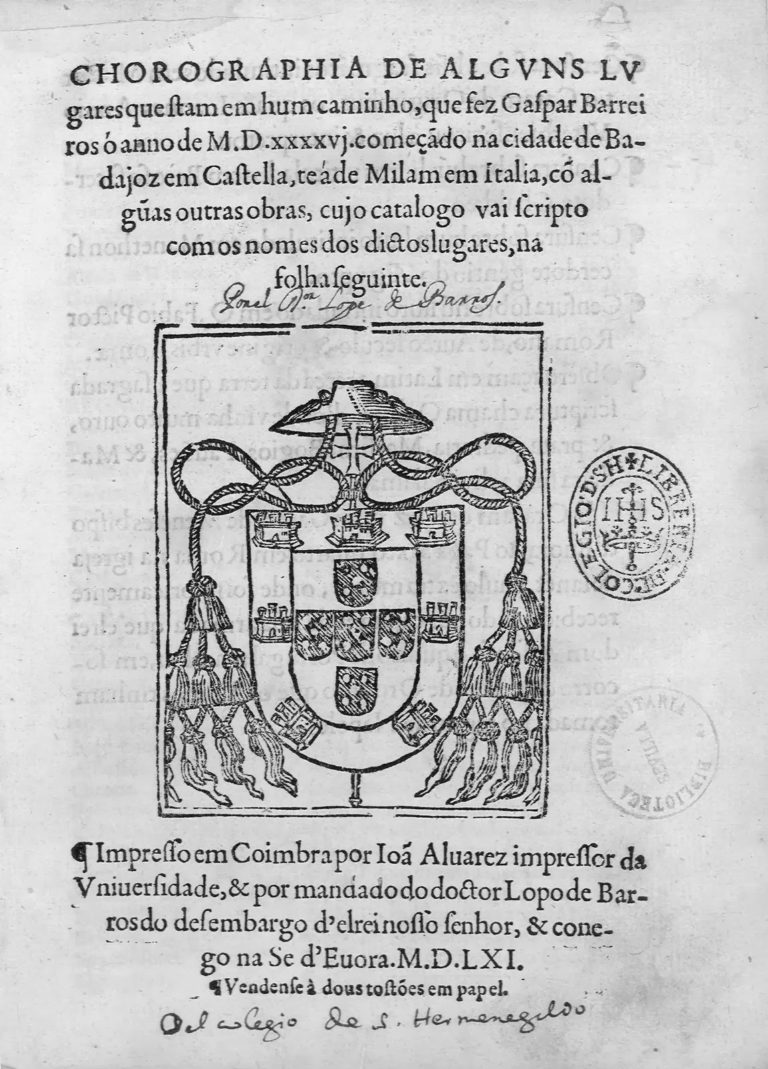 CHOROGRAPHIA DE ALGVNS LV
gares que ſtam em hum caminho, que fez Gaſpar Barrei
ros ó anno de M.D.xxxxvj. começãdo na cidade de Ba-
dajoz em Caſtella, te á de Milam em Italia, cõ al-
gũas outras obras, cujo catalogo vai ſcripto
com os nomes dos dictos lugares, na
folha ſeguinte.
Lope de Barros.
LIBRERIA·DE·COLEGIO·DSH
IHS
BIBLIOTECA UNIVERSITARIA
¶ Impreſſo em Coimbra por Ioã Aluarez impreſſor da
Vniuerſidade, & por mandado do doctor Lopo de Bar-
ros do deſembargo d'elrei noſſo ſenhor, & cone-
go na Se d'Euora. M.D.LXI.
¶ Vendenſe à dous toſtões em papel.
Del colegio de S. Hermenegildo